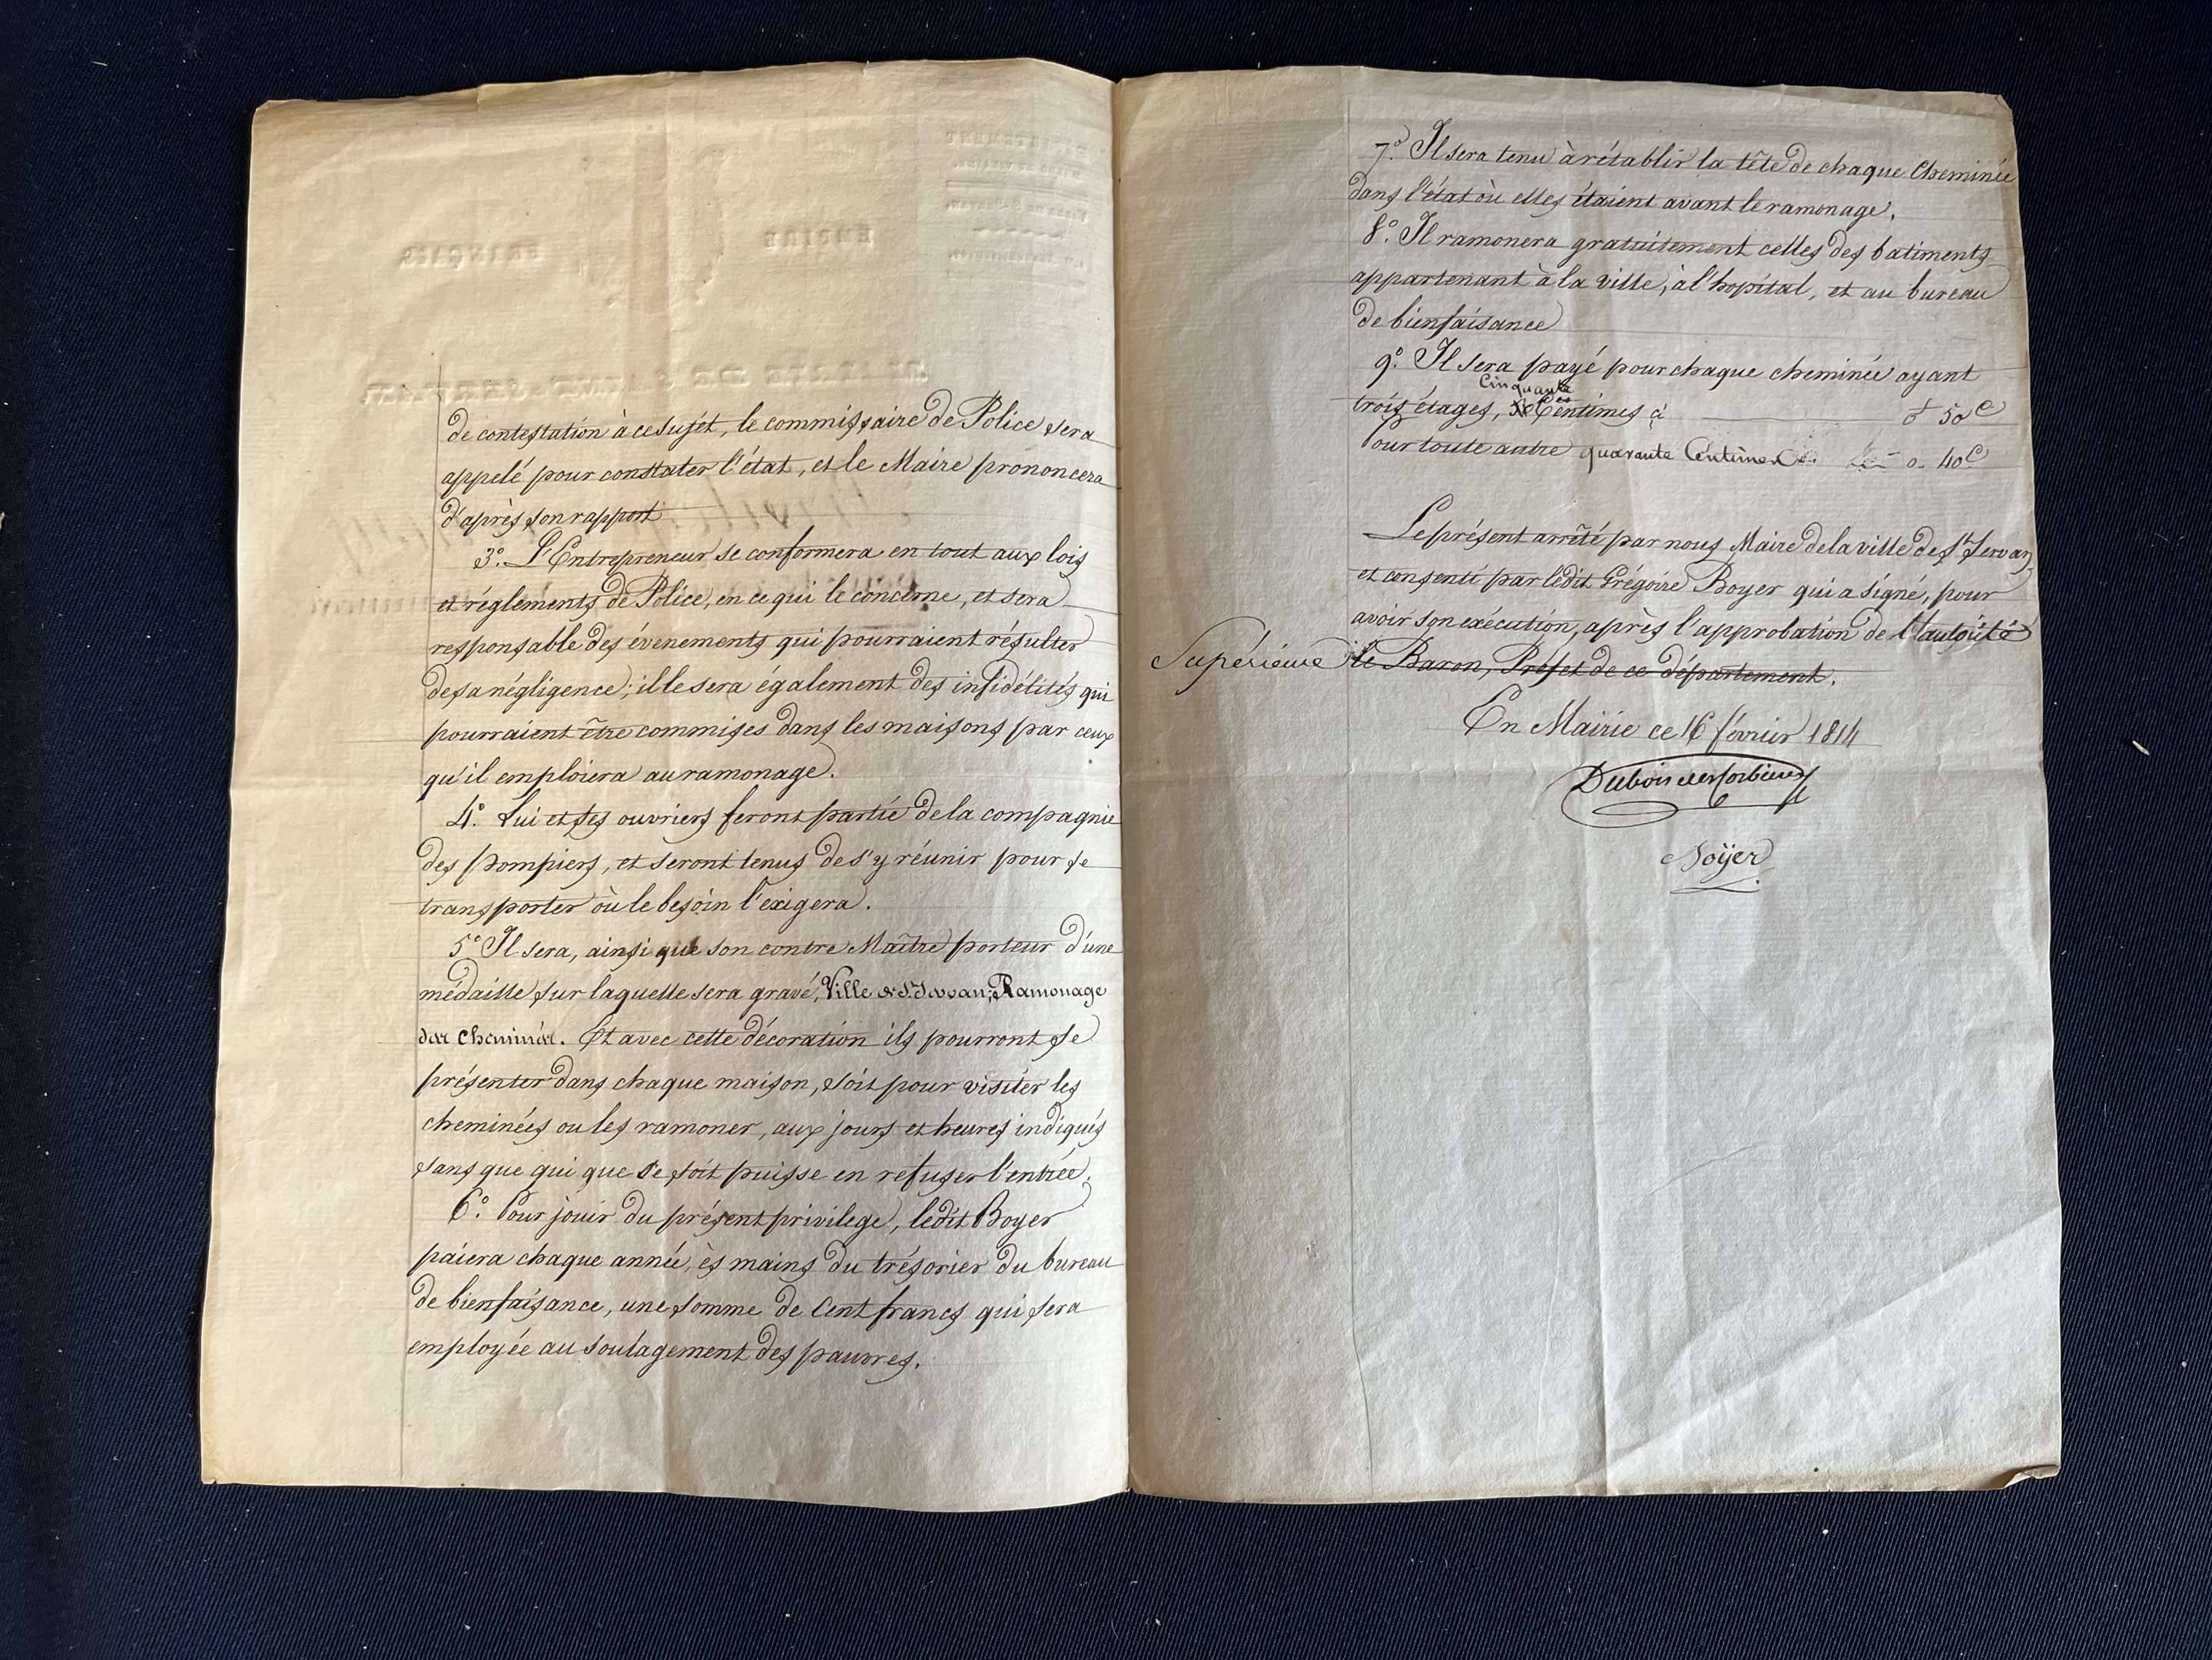 de contestation à ce sujet, le commissaire de Police sera
appelé pour constater l'état, et le Maire prononcera
d'après son rapport
3.° L'Entrepreneur se conformera en tout aux lois
et réglements de Police, en ce qui le concerne, et sera
responsable des évenements qui pourraient résulter
de sa négligence; il le sera également des infidélités qui
pourraient être commises dans les maisons par ceux
qu'il emploiera au ramonage.
4.° Lui et ses ouvriers feront partie de la compagnie
des Pompiers, et seront tenus de s'y réunir pour se
transporter où le besoin l'exigera.
5.° Il sera, ainsi que son contre Maître porteur d'une
médaille sur laquelle sera gravé, Ville de St. Servan; Ramonage
des Cheminées. Et avec cette décoration ils pourront se
présenter dans chaque maison, soit pour visiter les
cheminées ou les ramoner, aux jours et heures indiqués
sans que qui que ce soit puisse en refuser l'entrée.
6.° Pour jouir du présent privilege, ledit Boyer
paiera chaque année, ès mains du trésorier du bureau
de bienfaisance, une somme de Cent francs qui sera
employée au soulagement des pauvres.
7.° Il sera tenu à rétablir la tête de chaque Cheminée
dans l'état où elles étaient avant le ramonage.
8.° Il ramonera gratuitement celles des batiments
appartenant à la ville, à l'hopital, et au bureau
de bienfaisance
9.° Il sera payé pour chaque cheminée ayant
Cinquante
trois étages, Centimes ci 0 50c
Pour toute autre quarante Centimes 0. 40c
Le présent arrêté par nous Maire de la ville de St. Servan,
et consenti par ledit Grégoire Boyer qui a signé, pour
avoir son exécution, après l'approbation de l'autorité
Supérieure le Baron, Préfet de ce département.
En Mairie ce 16 février 1814
Dubois des Corbieres
Boÿer